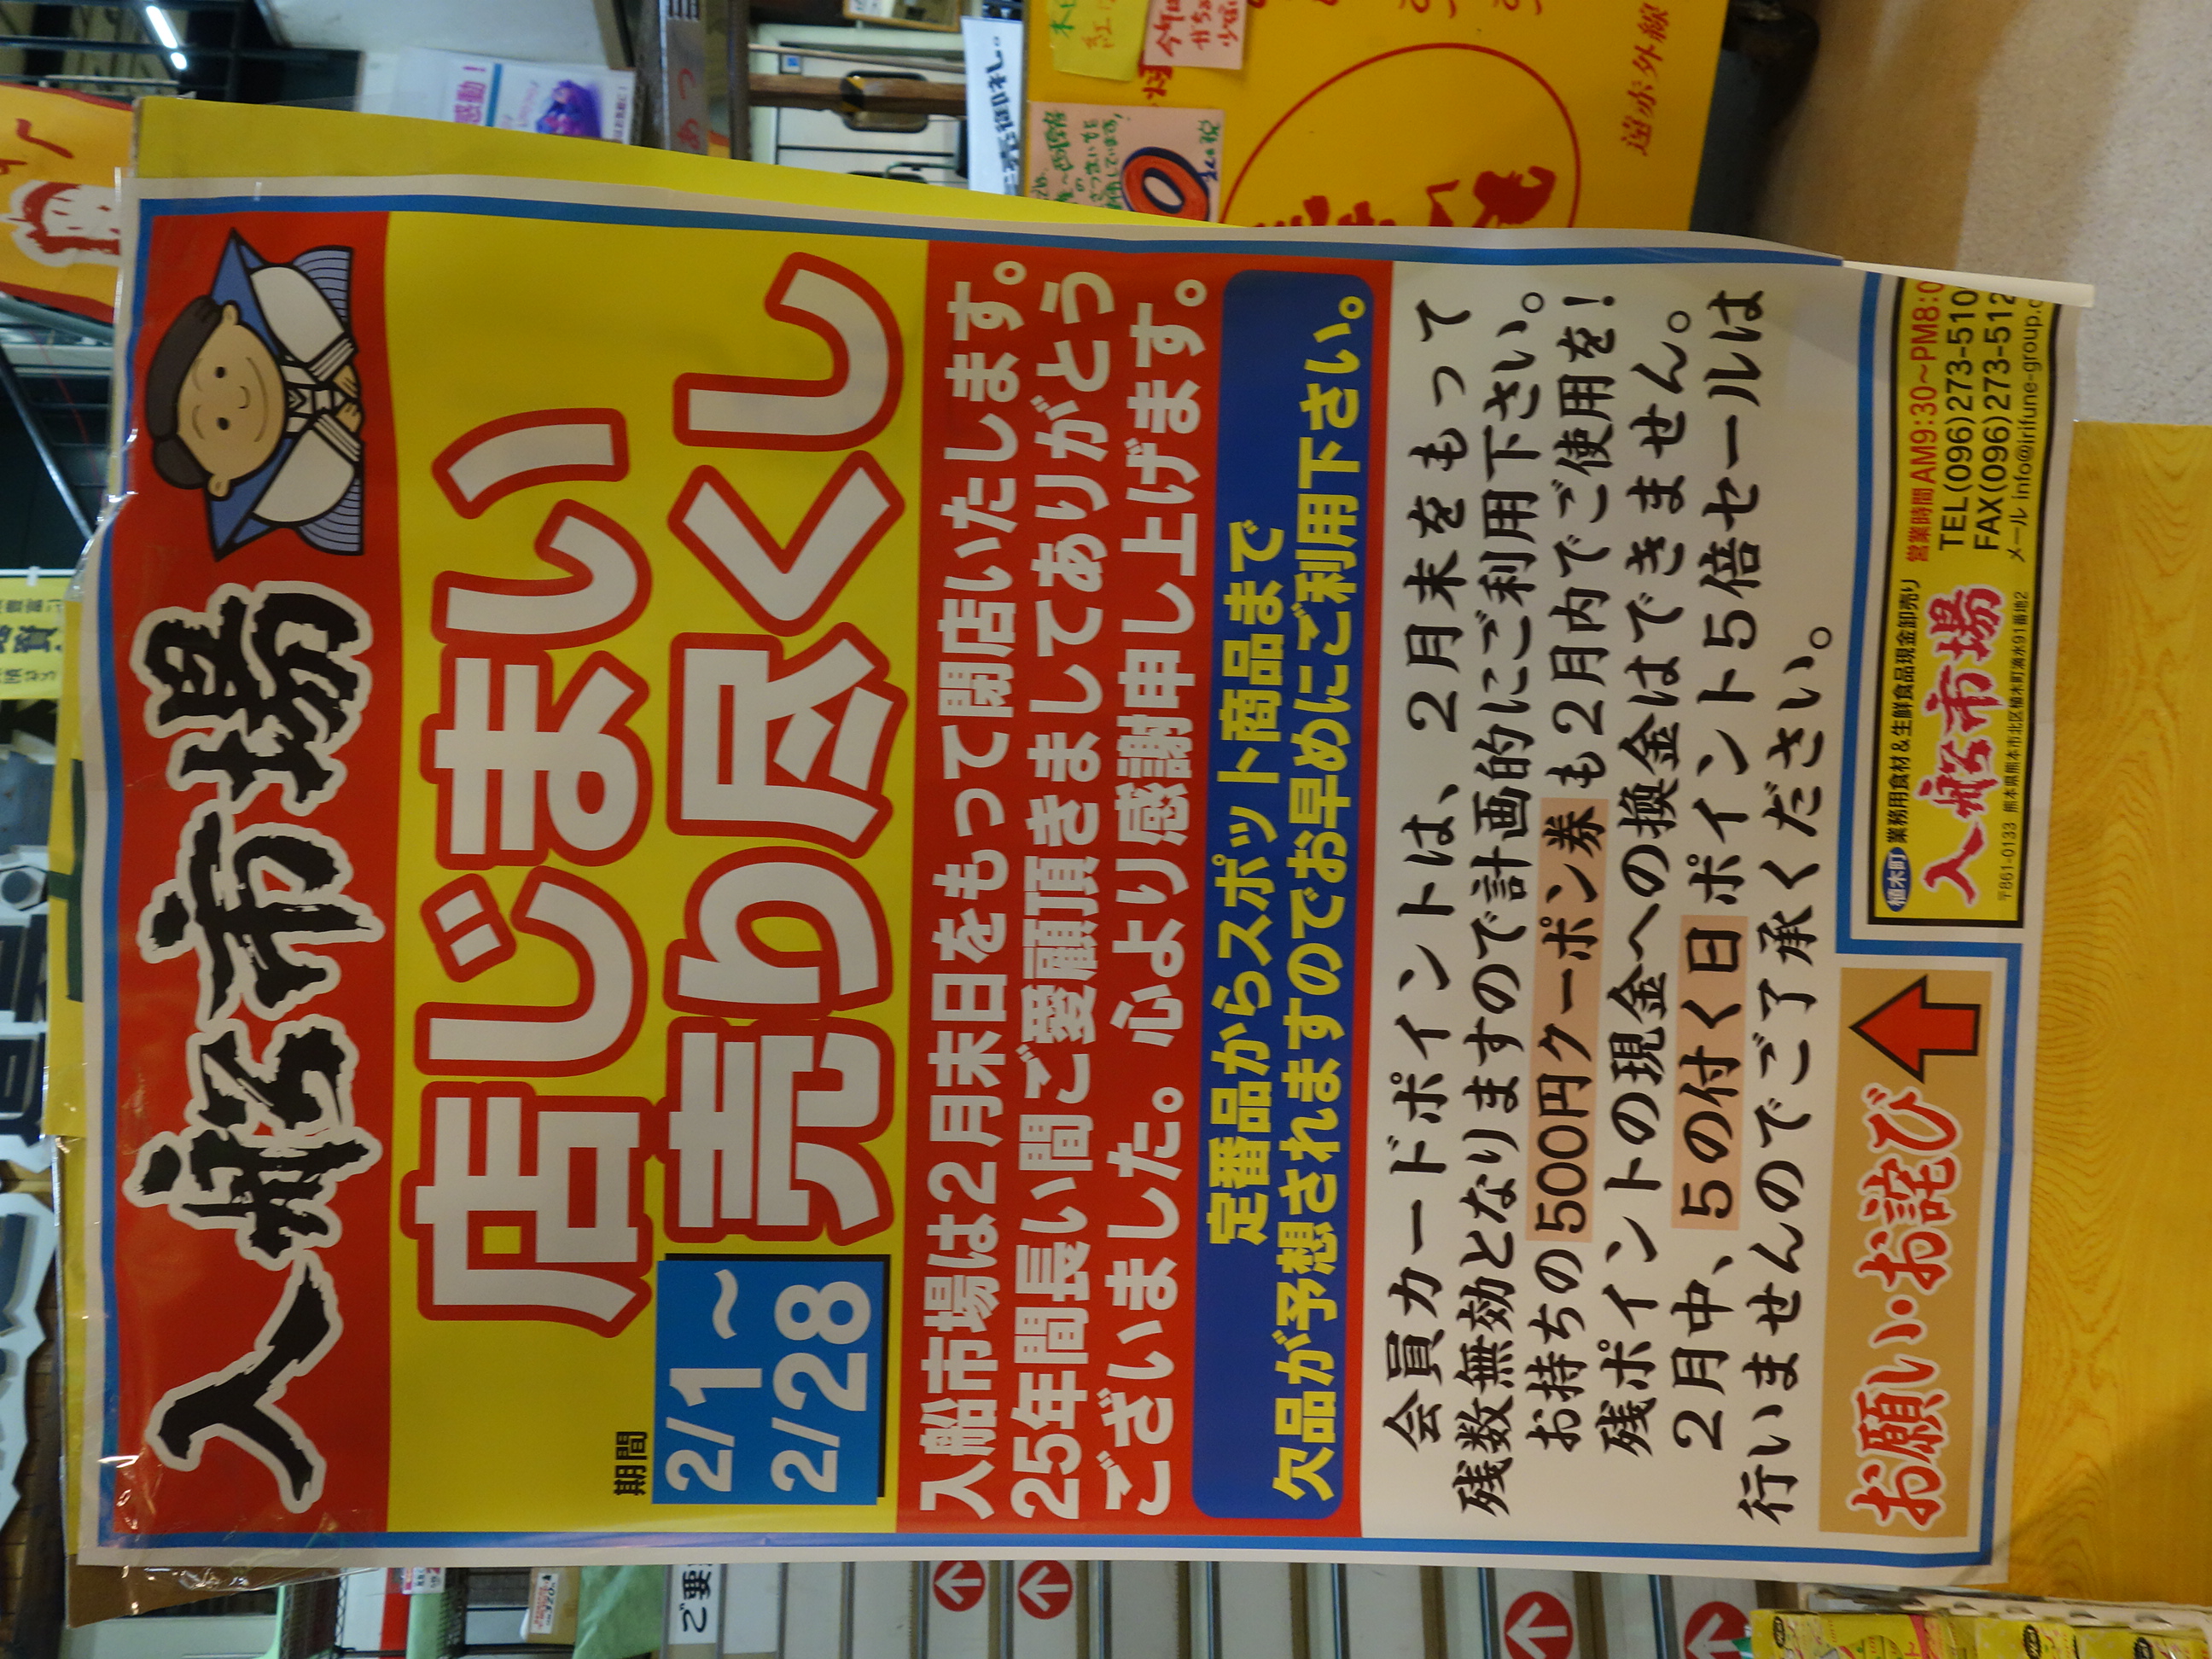 入船市場
店じまい
売り尽くし
期間
2/1～
2/28
入船市場は2月末日をもって閉店いたします。
25年間長い間ご愛顧頂きましてありがとう
ございました。心より感謝申し上げます。
定番品からスポット商品まで
欠品が予想されますのでお早めにご利用下さい。
会員カードポイントは、2月末をもって
残数無効となりますので計画的にご利用下さい。
お持ちの500円クーポン券も2月内でご使用を!
残ポイントの現金への換金はできません。
2月中、5の付く日ポイント5倍セールは
行いませんのでご了承ください。
お願い・お詫び
植木町 業務用食材&生鮮食品現金卸売り
入船市場
〒861-0133 熊本県熊本市北区植木町滴水91番地2
営業時間 AM9:30~PM8:0
TEL(096)273-510
FAX(096)273-512
メール info@irifune-group.c
遠赤外線
感動!
売御礼。
ご要